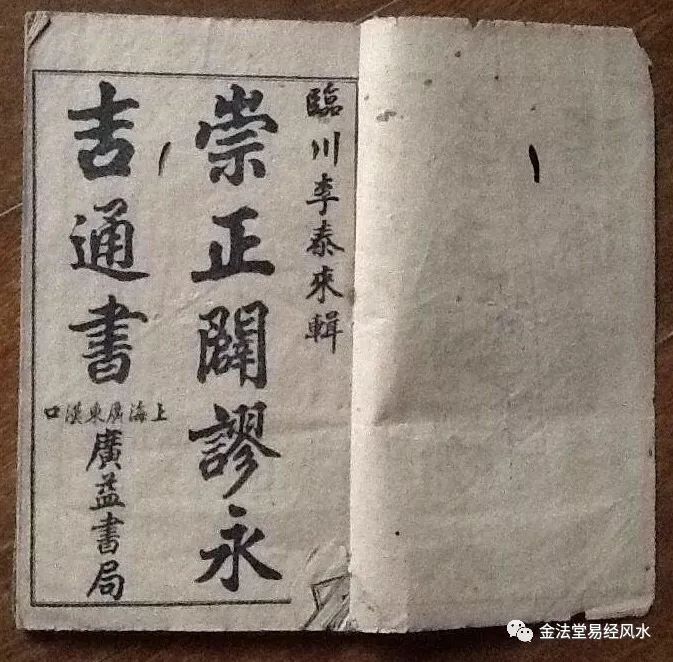 臨川李泰來輯
崇正闢謬永
吉通書
上海廣東漢口
廣益書局
金法堂易经风水